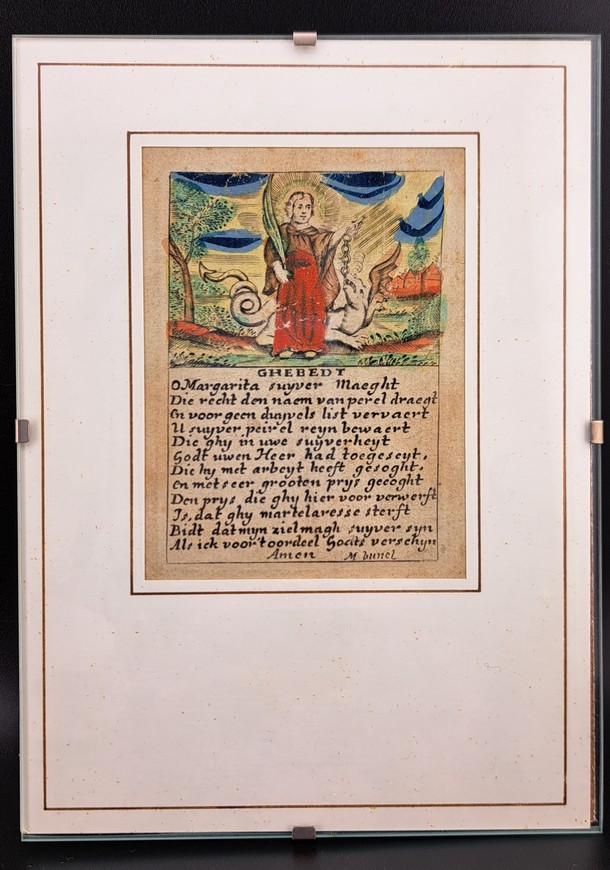 GHEBEDT
O Margarita suyver Maeght
Die recht den naem van perel draegt
En voor geen duyvels list vervaert
U suyver peirel reyn bewaert
Die ghy in uwe suyverheyt
Godt uwen Heer had toegeseyt,
Die hy met arbeyt heeft gesoght.
en met seer grooten prys gecoght
Den prys, die ghy hier voor verwerft
Is, dat ghy martelaresse sterft
Bidt dat myn ziel magh suyver syn
Als ick voor toordeel Godts verschyn
Amen M. bunel